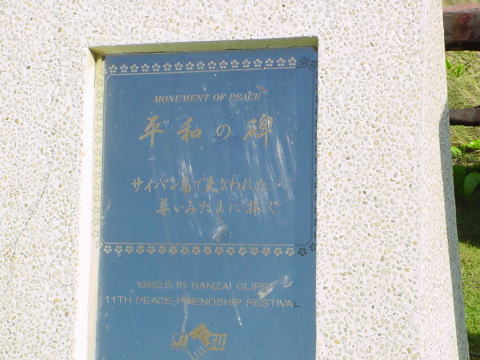 MONUMENT OF PEACE
平和の碑
サイパン島で失なわれた
尊いみたまに捧ぐ
1982.5.15 BANZAI CLIFF
11TH PEACE FRIENDSHIP FESTIVAL